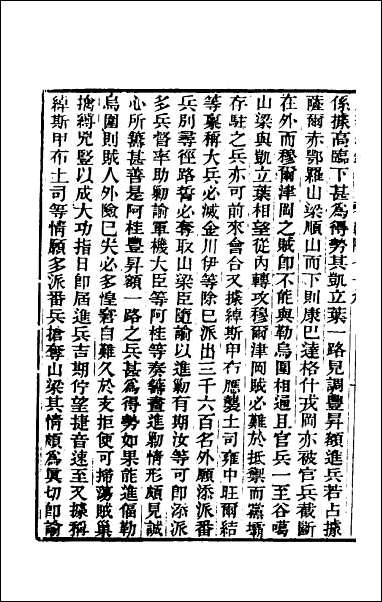 係據高臨下甚為得勢其凱立葉一路見調豐昇額進兵若占據
薩爾赤鄂羅山梁順山而下則康巴達格什戎岡亦被官兵截斷
在外而穆爾津岡之賊即不能與勒烏圍相通且官兵一至谷噶
山梁與凱立葉相望從內轉攻穆爾津岡賊必難於抵禦而黨壩
存駐之兵亦可前來會合又據綽斯甲布應襲土司雍中旺爾結
等稟稱大兵必滅金川伊等除已派出三千六百名外願添派番
兵別尋徑路誓必奪取山梁臣隨諭以進勦有期汝等可即添派
多兵督率助勦諭軍機大臣等阿桂等奏籌畫進勦情形頗見誠
心所籌甚善是阿桂豐昇額一路之兵甚為得勢如果能進偪勒
烏圍則賊人外險已失必多惶窘自難久於支拒便可掃蕩賊巢
擒縛兇豎以成大功指日即屆進兵吉期佇望捷音速至又據稱
綽斯甲布土司等情願多派番兵搶奪山梁其情頗為真切即諭